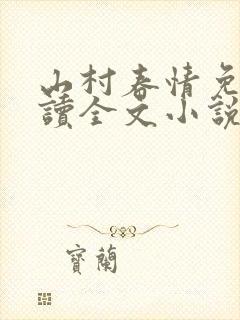 山村春情免
讀全文小說
寶蘭